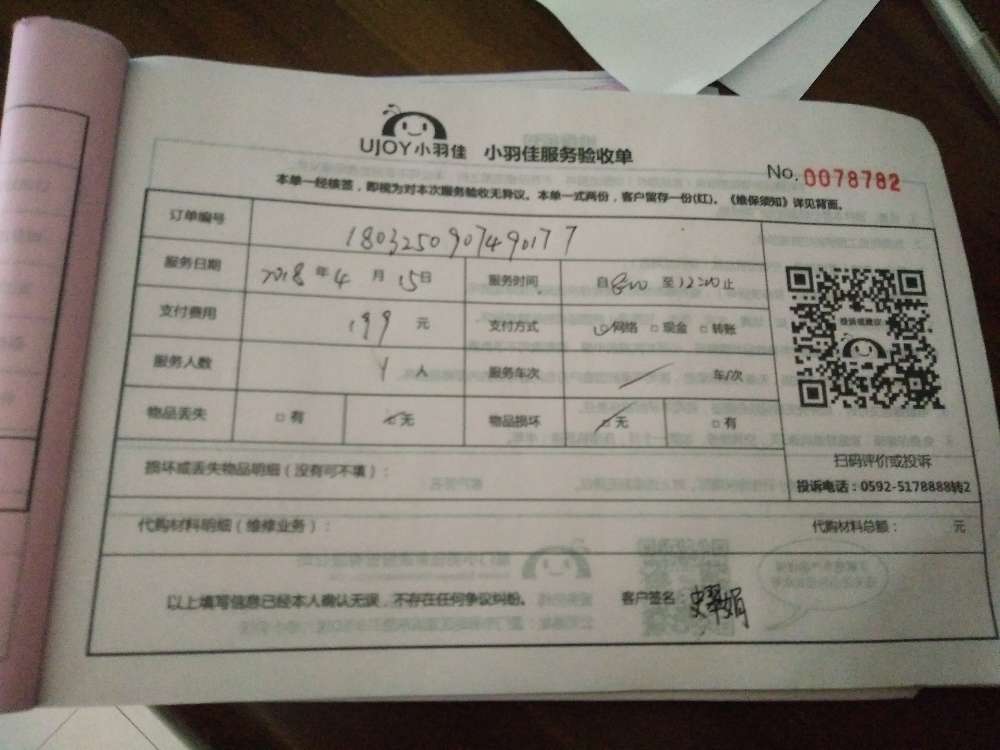 UJOY小羽佳 小羽佳服务验收单
No. 0078782
本单一经核签，即视为对本次服务验收无异议。本单一式两份，客户留存一份(红)。《维保须知》详见背面。
订单编号 1803250907490177
服务日期 2018年4月15日 服务时间 自8:00至12:00止
支付费用 199元 支付方式 ☑网络 □现金 □转账
投诉或建议
服务人数 4人 服务车次 / 车/次
物品丢失 □有 ☑无 物品损坏 ☑无 □有
扫码评价或投诉
损坏或丢失物品明细（没有可不填）：
投诉电话：0592-5178888转2
代购材料明细（维修业务）： 代购材料总额： 元
以上填写信息已经本人确认无误，不存在任何争议纠纷。 客户签名